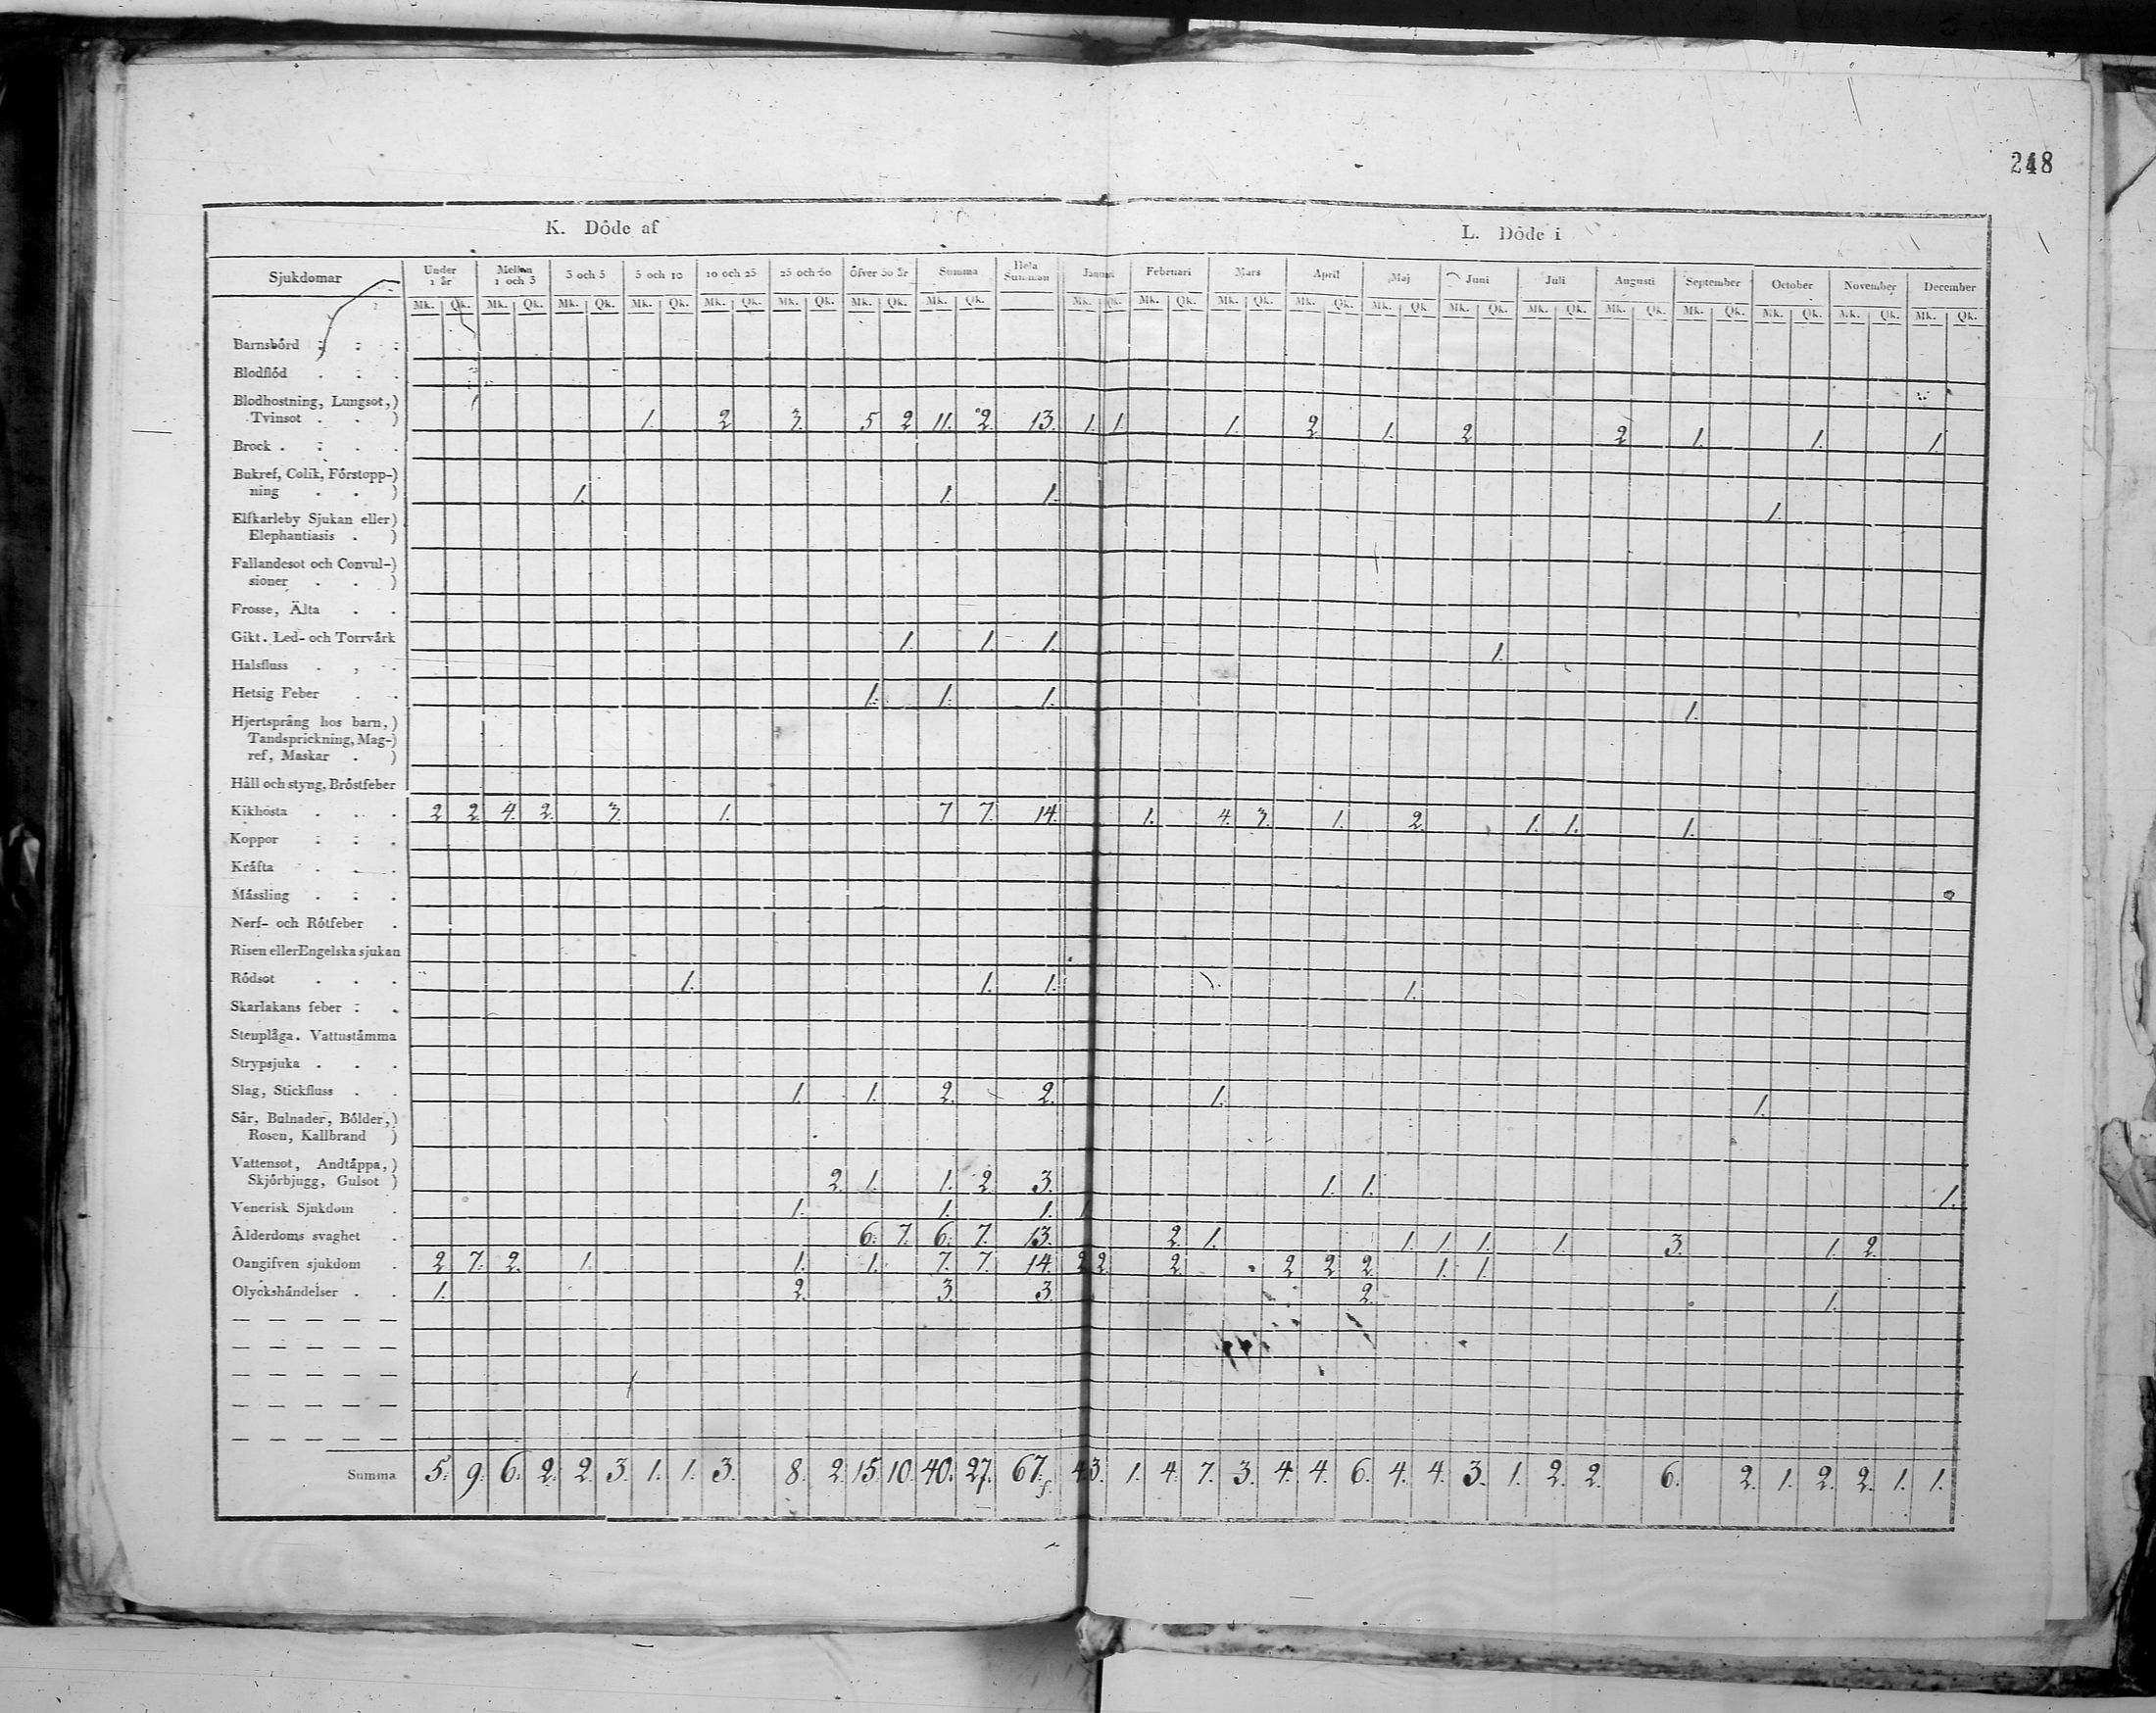 248
K. Döde af L. Döde i
Sjukdomar Under 1 år Mellan 1 och 3 3 och 5 5 och 10 10 och 25 25 och 50 Öfver 50 år Summa Hela Summan Januari Februari Mars April Maj Juni Juli Augusti September October November December
Mk. Qk. Mk. Qk. Mk. Qk. Mk. Qk. Mk. Qk. Mk. Qk. Mk. Qk. Mk. Qk. Mk. Qk. Mk. Qk. Mk. Qk. Mk. Qk. Mk. Qk. Mk. Qk. Mk. Qk. Mk. Qk. Mk. Qk. Mk. Qk. Mk. Qk. Mk. Qk.
Barnsbörd
Blodflöd
Blodhostning, Lungsot,)
Tvinsot . . ) 1. 2 3. 5 2 11. 2. 13. 1. 1. 1. 2 1. 2 2 1. 1. 1.
Brock .
Bukref, Colik, Förstopp-)
ning . . ) 1. 1. 1. 1.
Elfkarleby Sjukan eller)
Elephantiasis . )
Fallandesot och Convul-)
sioner . . )
Frosse, Älta
Gikt. Led- och Torrvärk 1. 1. 1. 1.
Halsfluss
Hetsig Feber 1. 1. 1. 1.
Hjertsprång hos barn,)
Tandsprickning, Mag-)
ref, Maskar . )
Håll och styng, Bröstfeber
Kikhosta 2 2. 4. 2. 3. 1. 7 7. 14. 1. 4. 3. 1. 2. 1. 1. 1.
Koppor
Kräfta
Mässling
Nerf- och Rötfeber
Risen eller Engelska sjukan
Rödsot 1. 1. 1. 1.
Skarlakans feber
Stenplåga. Vattustämma
Strypsjuka
Slag, Stickfluss 1. 1. 2. 2. 1. 1.
Sår, Bulnader, Bölder,)
Rosen, Kallbrand )
Vattensot, Andtäppa,)
Skjörbjugg, Gulsot ) 2. 1. 1. 2. 3. 1. 1. 1.
Venerisk Sjukdom 1. 1. 1. 1
Ålderdoms svaghet 6. 7. 6. 7. 13. 2. 1. 1. 1. 1. 1. 3. 1. 2.
Oangifven sjukdom 2. 7. 2. 1. 1. 1. 7. 7. 14. 2 2. 2. 2 2 2. 1. 1.
Olyckshändelser 1. 2. 3. 3. 2. 1.
Summa 5. 9. 6. 2. 2. 3. 1. 1. 3. 8. 2. 15. 10. 40. 27. 67. 4. 3. 1. 4. 7. 3. 4. 4. 6. 4. 4. 3. 1. 2. 2. 6. 2. 1. 2. 2. 1. 1.